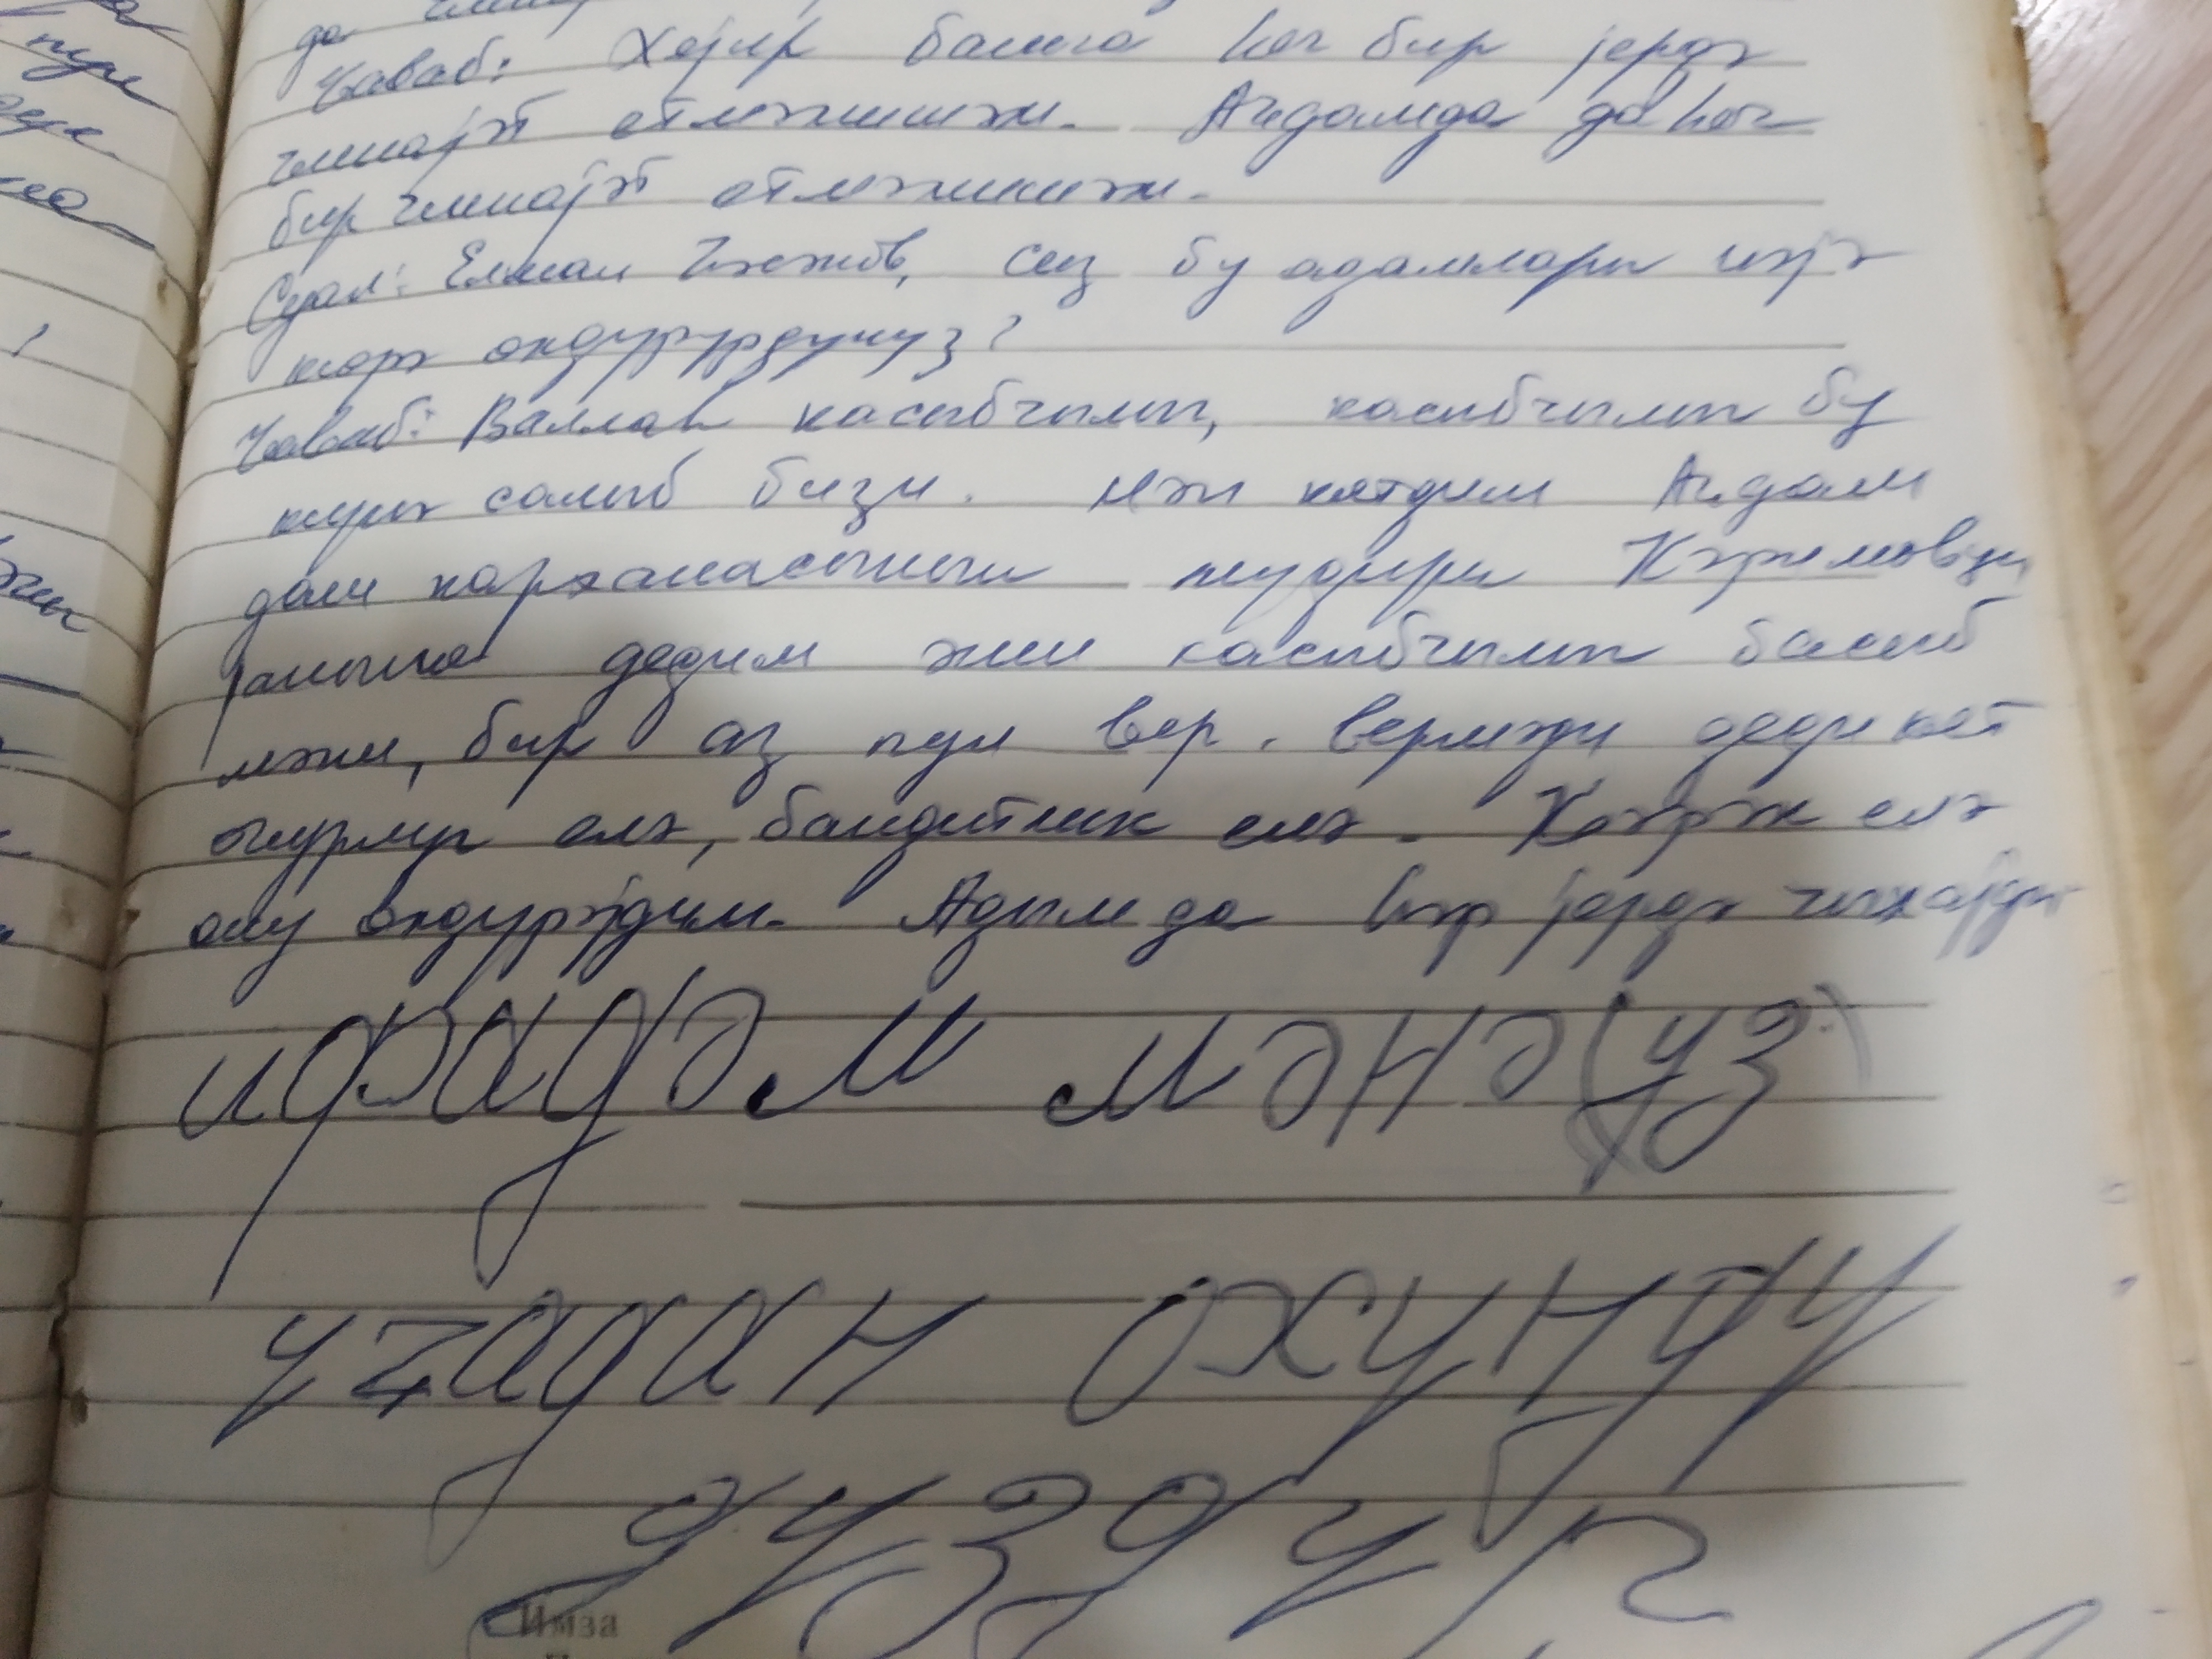 да
Чаваб: Хејир башга һеч бир јердә
ҹинајәт етмәмишәм. Ағдамда да һеч
бир ҹинајәт етмәмишәм.
Суал: Елман сиз бу адамлары нәјә
ҝөрә өлдүрүрдүнүз?
Чаваб: Валлаһ касыбчылыг, касыбчылыг бу
ҝүнә салыб бизи. Мән ҝетдим Ағдам
дәмир карханасынын мүдири Кәримовун
јанына дедим мән касыбчылыг басыб
мәни, бир аз пул вер. Вермәди деди ҝет
оғурлуг елә, бандитлик елә. Ҝәрәк елә
ону өлдүрәјдим. Адым да һәр јердә чыхајды
ифадәм мәнә (үз)
үzүдән охунду
дүздүр
Имза